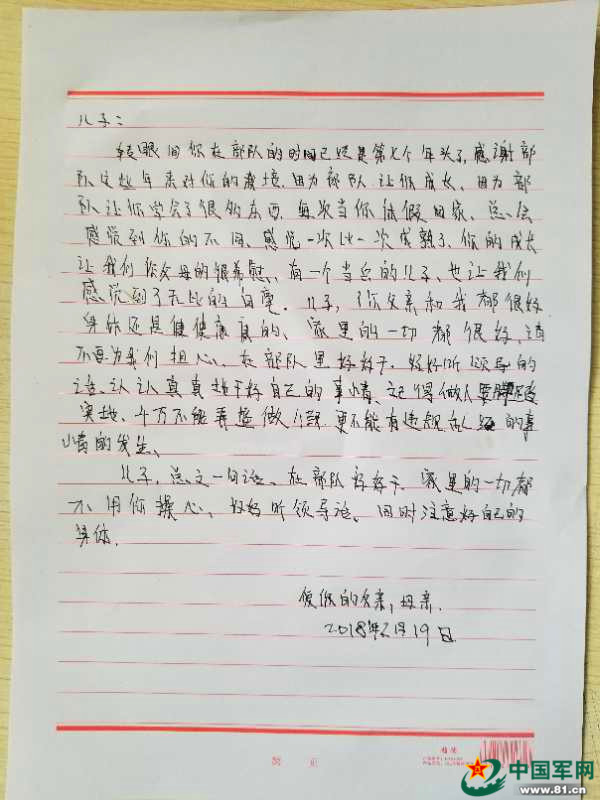 儿子：
转眼间你在部队的时间已经是第七个年头了，感谢部
队这些年来对你的培养，因为部队让你成长、因为部
队让你学会了很多东西，每次当你休假回家，总会
感觉到你的不同、感觉一次比一次成熟了，你的成长
让我们做父母的很欣慰、有一个当兵的儿子，也让我们
感觉到了无比的自豪。儿子，你父亲和我都很好
身体还是健健康康的、家里的一切都很好，请
不要为我们担心，在部队里好好干，好好听领导的
话、认认真真地干好自己的事情，记得做人要脚踏
实地、千万不能弄虚做假 更不能有违规乱纪的事
情的发生、
儿子，总之一句话、在部队好好干，家里的一切都
不用你操心、好好听领导话、同时注意好自己的
身体．
你的父亲，母亲．
2018年2月19日
中国军网
www.81.cn